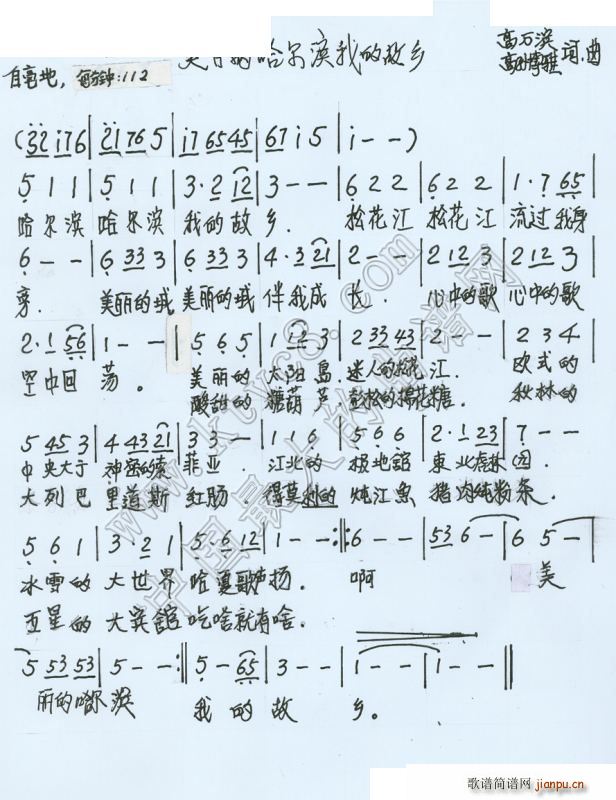 哈尔滨我的故乡
高石滨 词.曲
自豪地, 每分钟:112
(32 i76 | 2i 76 5 | i7 65 45 | 67 i 5 | i - - )
5 1 1 | 5 1 1 | 3·2 12 | 3 - - | 6 2 2 | 6 2 2 | 1·7 65 |
哈尔滨 哈尔滨 我的故 乡. 松花江 松花江 流过我身
6 - - | 6 33 3 | 6 33 3 | 4·3 21 | 2 - - | 2 12 3 | 2 12 3 |
旁. 美丽的哦 美丽的哦 伴我成 长. 心中的歌 心中的歌
2·1 56 | 1 - - | 5 6 5 | 1 12 3 | 2 33 43 | 2 - - | 2 3 4 |
空中回 荡。 美丽的 太阳岛. 迷人的松花 江. 欧式的
酸甜的 糖葫芦. 蓬松的棉花 糖. 秋林的
5 45 3 | 4 43 21 | 3 3 - | 1 1 6 | 5 6 6 | 2·1 23 | 7 - - |
中央大于 神密的索 菲亚. 江北的 极地馆 东北虎林 园.
大列巴 里道斯 红肠. 得莫利的 炖江鱼 猪肉炖粉 条.
5 6 1 | 3·2 1 | 5·6 12 | 1 - - :||: 6 - - | 53 6 - | 6 5 - |
冰雪的 大世界 哈夏歌声 扬. 啊 美
五星的 大宾馆 吃啥就有 啥.
5 53 53 | 5 - - :|| 5 - 65 | 3 - - | 1 - - | 1 - - ||
丽的哈尔 滨 我的 故 乡。
www.ktvc8.com
中国最大的曲谱网
歌谱简谱网
jianpu.cn